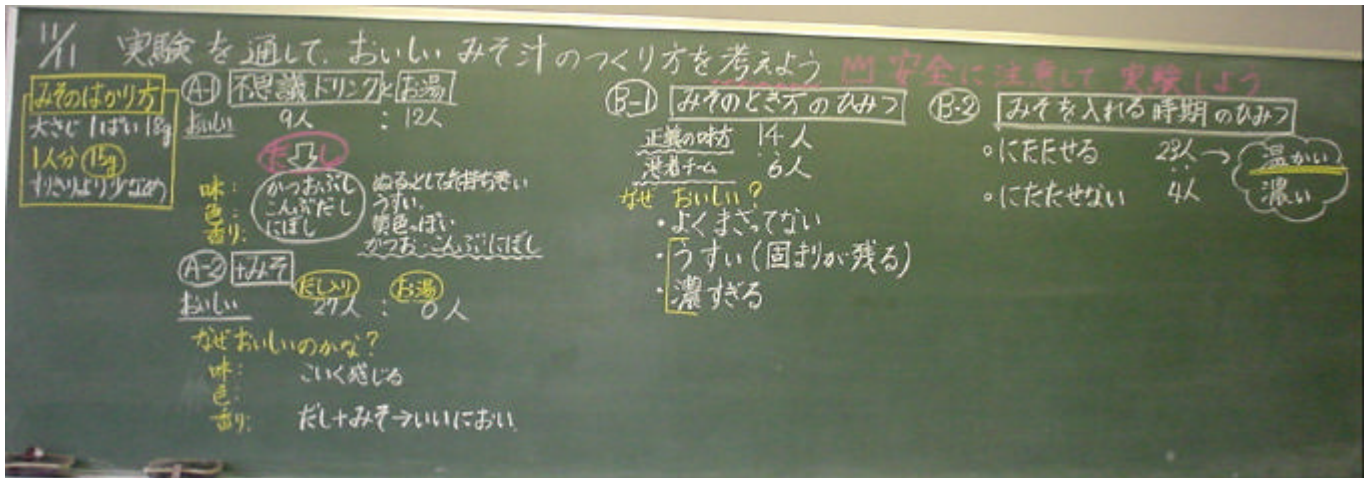 11/11 実験を通して、おいしいみそ汁のつくり方を考えよう 安全に注意して実験しよう
みそのはかり方
大さじ1ぱい18g
1人分 15g
すりきりより少なめ
A-1 不思議ドリンクとお湯
おいしい 9人 : 12人
だし
味: かつおぶし ぬるっとして気持ち悪い
色: こんぶだし うすい。
香り: にぼし 黄色っぽい
かつお・こんぶ・にぼし
A-2 +みそ
だし入り お湯
おいしい 27人 : 0人
なぜおいしいのかな?
味: こいく感じる
色:
香り: だし+みそ→いいにおい
B-1 みそのとき方のひみつ
正義の味方 14人
悪者チーム 6人
なぜ おいしい?
・よくまざってない
・うすい(固まりが残る)
・濃すぎる
B-2 みそを入れる時期のひみつ
○にたたせる 23人→ 温かい
○にたたせない 4人 濃い